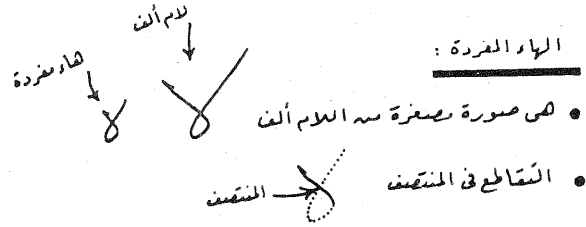 الهاء المفردة :
لام ألف
هاء مفردة
هى صورة مصغرة من اللام ألف
التقاطع فى المنتصف
المنتصف